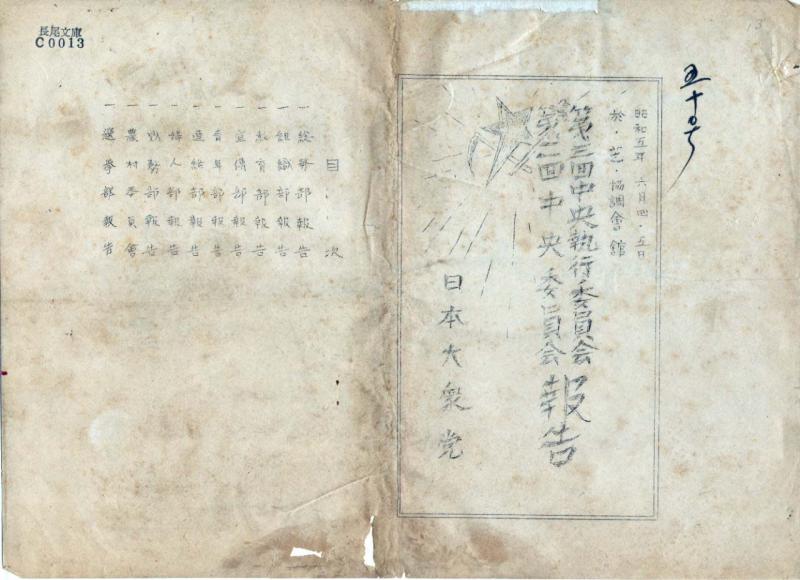 五十号
昭和五年 六月四・五日
於・芝・協調會館
第三回中央執行委員会
第二回中央委員会
報告
日本大衆党
長尾文庫
C0013
目次
一 総務部報告
一 組織部報告
一 教育部報告
一 宣傳部報告
一 青年部報告
一 連絡部報告
一 婦人部報告
一 部報告
一 農村委員會
一 選挙部報告